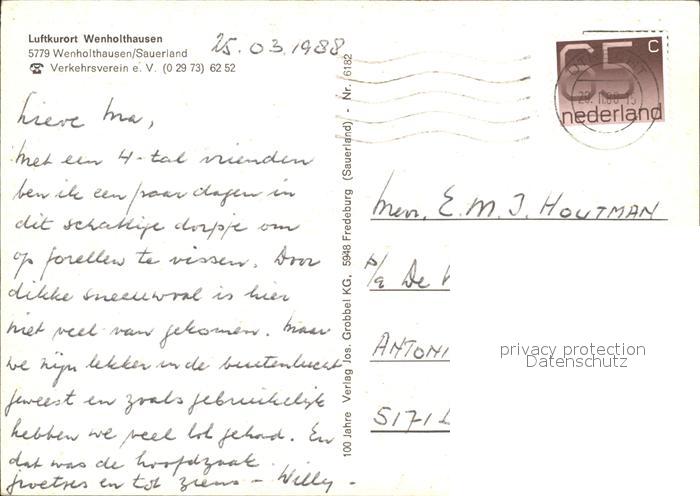 Luftkurort Wenholthausen
5779 Wenholthausen/Sauerland
☎ Verkehrsverein e. V. (0 29 73) 62 52
25.03.1988
Lieve Ma,
Met een 4-tal vrienden
ben ik een paar dagen in
dit schattige dorpje om
op forellen te vissen. Door
dikke sneeuwval is hier
niet veel van gekomen. Maar
we zijn lekker in de buitenlucht
geweest en zoals gebruikelijk
hebben we veel lol gehad. En
dat was de hoofdzaak.
groetjes en tot ziens - Willy -
100 Jahre Verlag Jos. Grobbel KG, 5948 Fredeburg (Sauerland) - Nr. 6182
65 c
nederland
Mevr. E.M.J. HOUTMAN
p/a De
ANTONI
5171
privacy protection
Datenschutz